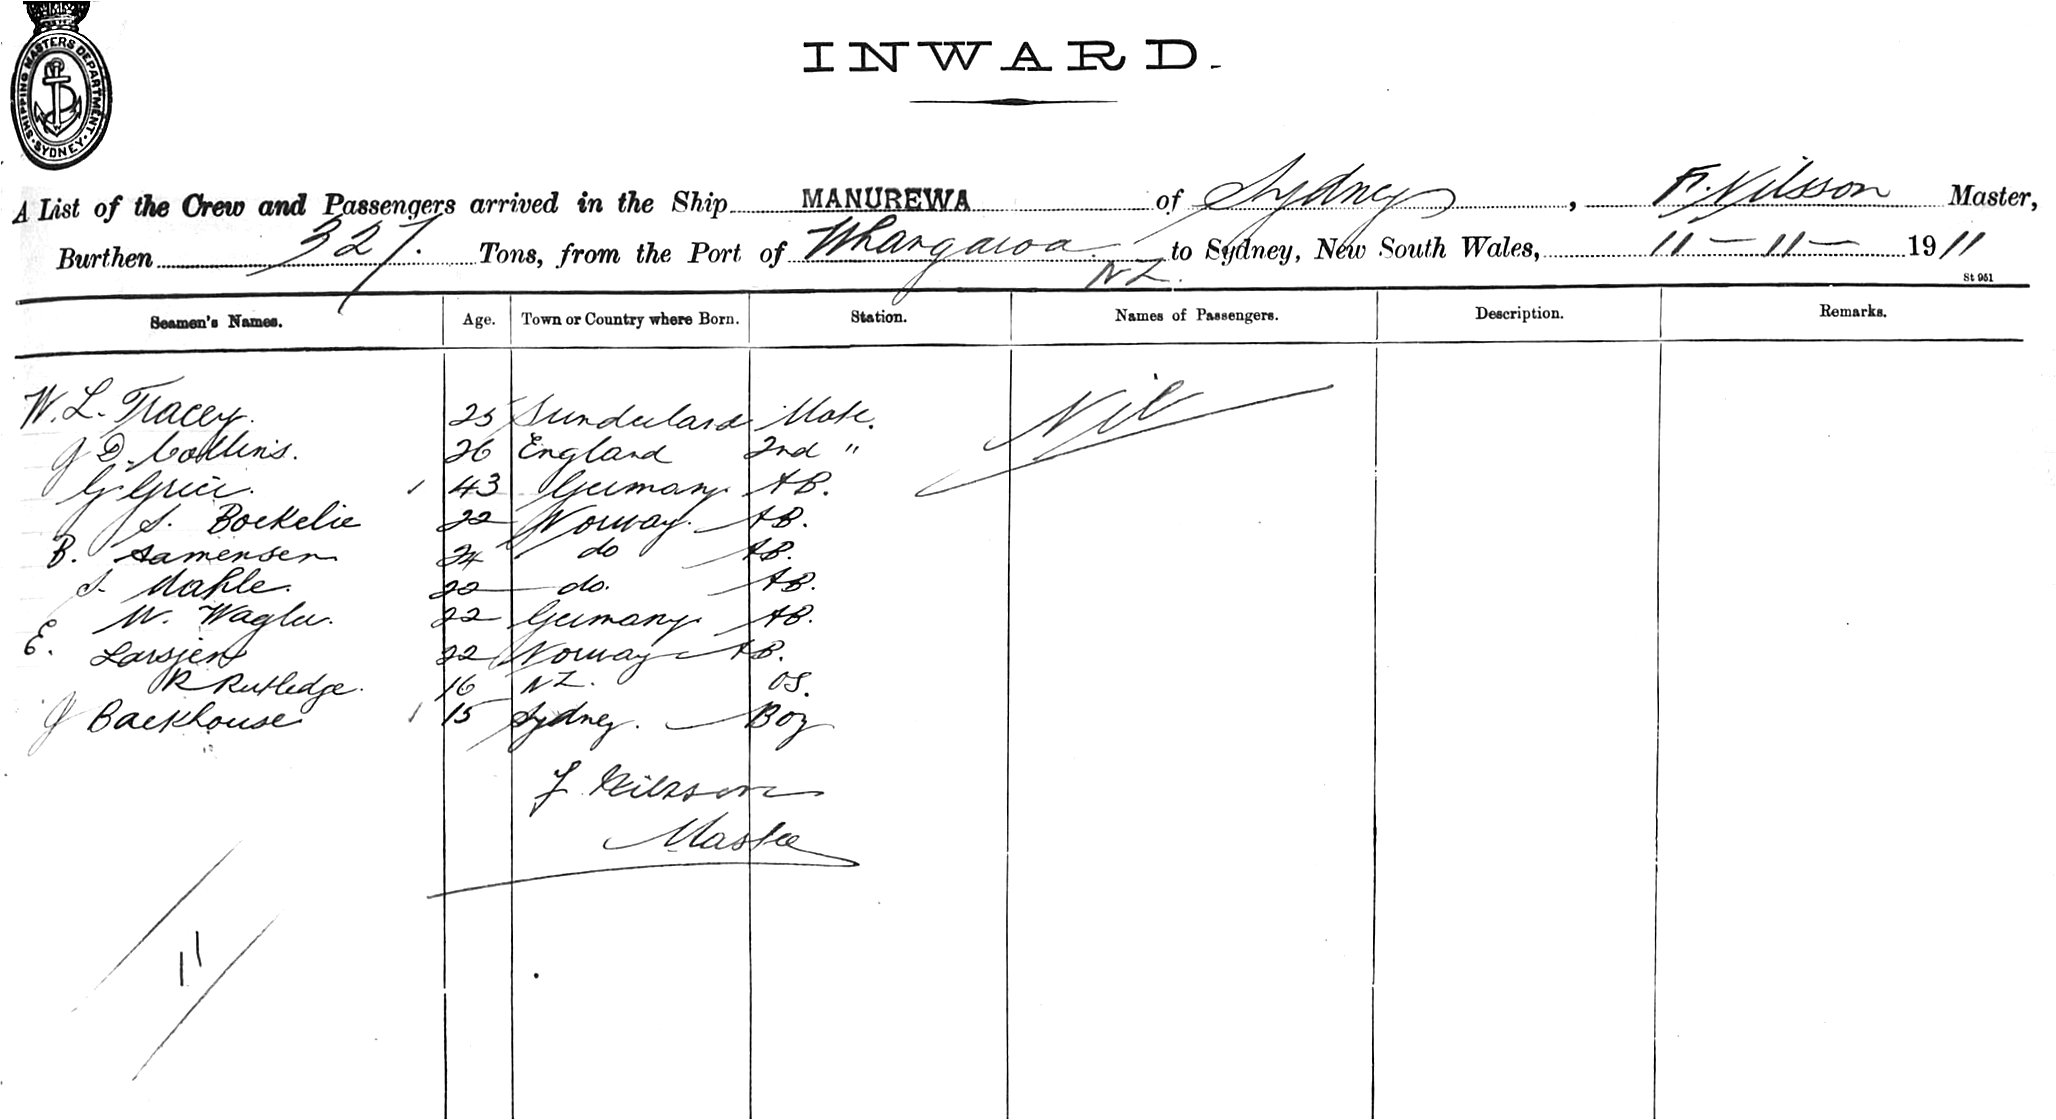 SHIPPING MASTERS DEPARTMENT
SYDNEY
INWARD.
A List of the Crew and Passengers arrived in the Ship MANUREWA of Sydney, F. Nilsson Master,
Burthen 327. Tons, from the Port of Whangaroa N.Z. to Sydney, New South Wales, 11-11-1911
St 951
Seamen's Names. Age. Town or Country where Born. Station. Names of Passengers. Description. Remarks.
W. L. Tracey. 25 Sunderland Mate. Nil
J D. Collins. 26 England 2nd "
G. 43 Germany AB.
S. Boekelie 22 Norway. AB.
B. Aamensen 24 do AB.
S. Mahle. 22 do. AB.
W. 22 Germany AB.
E. Larsjen 22 Norway AB.
R Rutledge. 16 NZ. OS.
J Backhouse 15 Sydney. Boy
F. Nilsson
Master
11